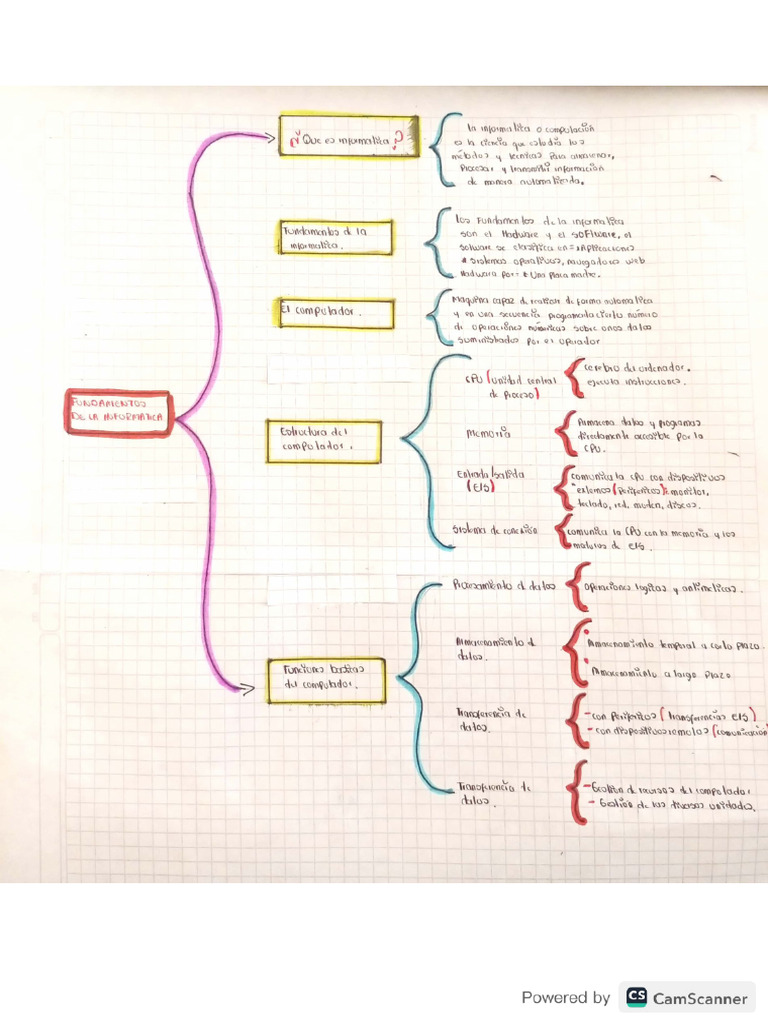 FUNDAMENTOS
DE LA INFORMATICA
¿Que es informatica?
la informatica o computación
es la ciencia que estudia los
métodos y tecnicas para almacenar,
Procesar y transmitir información
de manera automatizada.
Fundamentos d la
informatica.
Los Fundamentos de la informatica
son el Hadware y el software, el
software se clasifica en = Applicaciones
* sistemas operativos, navegadores web
Hadwara por= * Una placa madre.
El computador.
Maquina capaz de realizar de forma automatica
y en una secuencia programada cierto número
de operaciones númericas sobre unos datos
suministrados por el operador
Estructura del
computador.
CPU (unidad central
de proceso)
cerebro del ordenador.
ejecuta instrucciones.
Memoria
Almacena datos y programas
directamente accesible por la
CPU.
Entrada/salida
(E/S)
comunica la CPU con dispositivos
externos (Perifericos): monitor,
teclado, red, modem, discos.
Sistema de conexión
comunica la CPU con la memoria y los
de E/S.
Funciones basicas
del computador.
Procesamiento d datos
operaciones logicas y aritmeticas.
Almacenamiento d
datos.
Almacenamiento temporal a corto plazo.
Almacenamiento a largo plazo
Transferencia de
datos.
-con Perifericos (transferencias E/S)
-con dispositivos remotos (comunicación)
Transferencia de
datos.
-Gestión d recursos del computador
- Gestión de las diversas unidades.
Powered by CS CamScanner